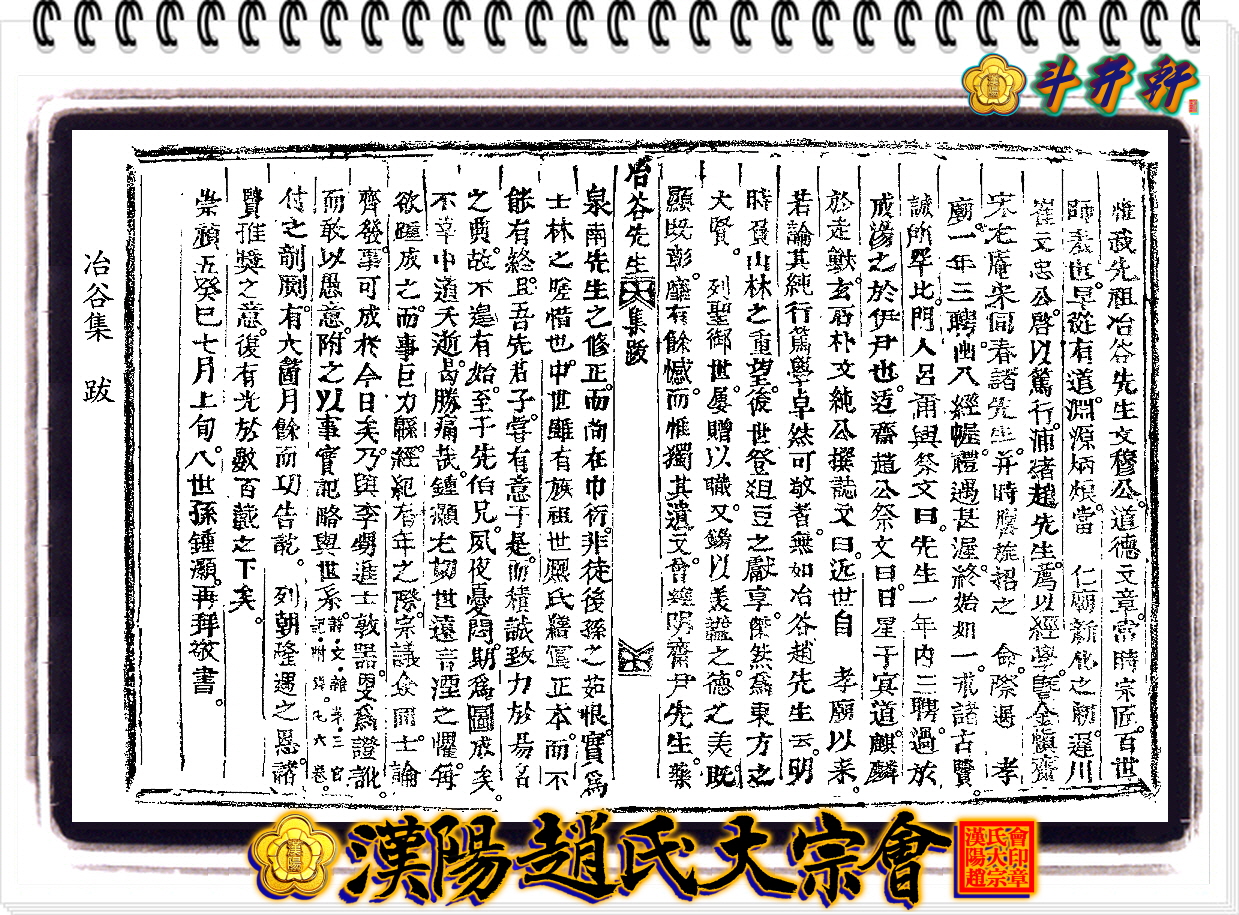 斗井軒
惟我先祖冶谷先生文穆公道德文章當時宗匠百世
師表也早從有道淵源炳煥當 仁廟新化之朝遲川
崔文忠公啓以篤行浦渚趙先生薦以經學曁金愼齋
宋尤庵宋同春諸先生并時膺旌招之 命際遇 孝
廟一年三聘幽人經幄禮遇甚渥終始如一求諸古賢
誠所罕比門人呂爾興祭文曰先生一年內三聘過於
成湯之於伊尹也迃齋趙公祭文曰日星于冥道麒麟
於走獸玄石朴文純公撰誌文曰近世自 孝廟以來
若論其純行篤學卓然可敬者無如冶谷趙先生云明
時負山林之重望後世登俎豆之獻享傑然爲東方之
大賢 列聖御世屢贈以職又錫以美謚之德之美既
顯既彰靡有餘憾而惟獨其遺文會蠖明齋尹先生藥
冶谷先生文集跋
泉南先生之修正而尙在巾衍非徒後孫之茹恨實爲
士林之嗟惜也中世雖有族祖世熙氏繕僎正本而不
能有終且吾先君子嘗有意于是而積誠致力於揚名
之典故不遑有始至于先伯兄夙夜憂悶期爲圖成矣
不幸中道夭逝曷勝痛哉鍾灝尤切世遠言湮之懼每
欲踵成之而事巨力緜經紀有年之際宗議僉同士論
齊發事可成於今日矣乃與李甥進士敦器更爲證訛
而敢以愚意附之以事實記略與世系詩文雜著三官記附錄凡六卷
付之剞劂有六箇月餘而功告訖 列朝隆遇之恩諸
賢推奬之意復有光於數百載之下矣
崇禎五癸巳七月上旬八世孫鍾灝再拜敬書
冶谷集 跋
漢陽趙氏大宗會
漢陽趙氏大宗會印章